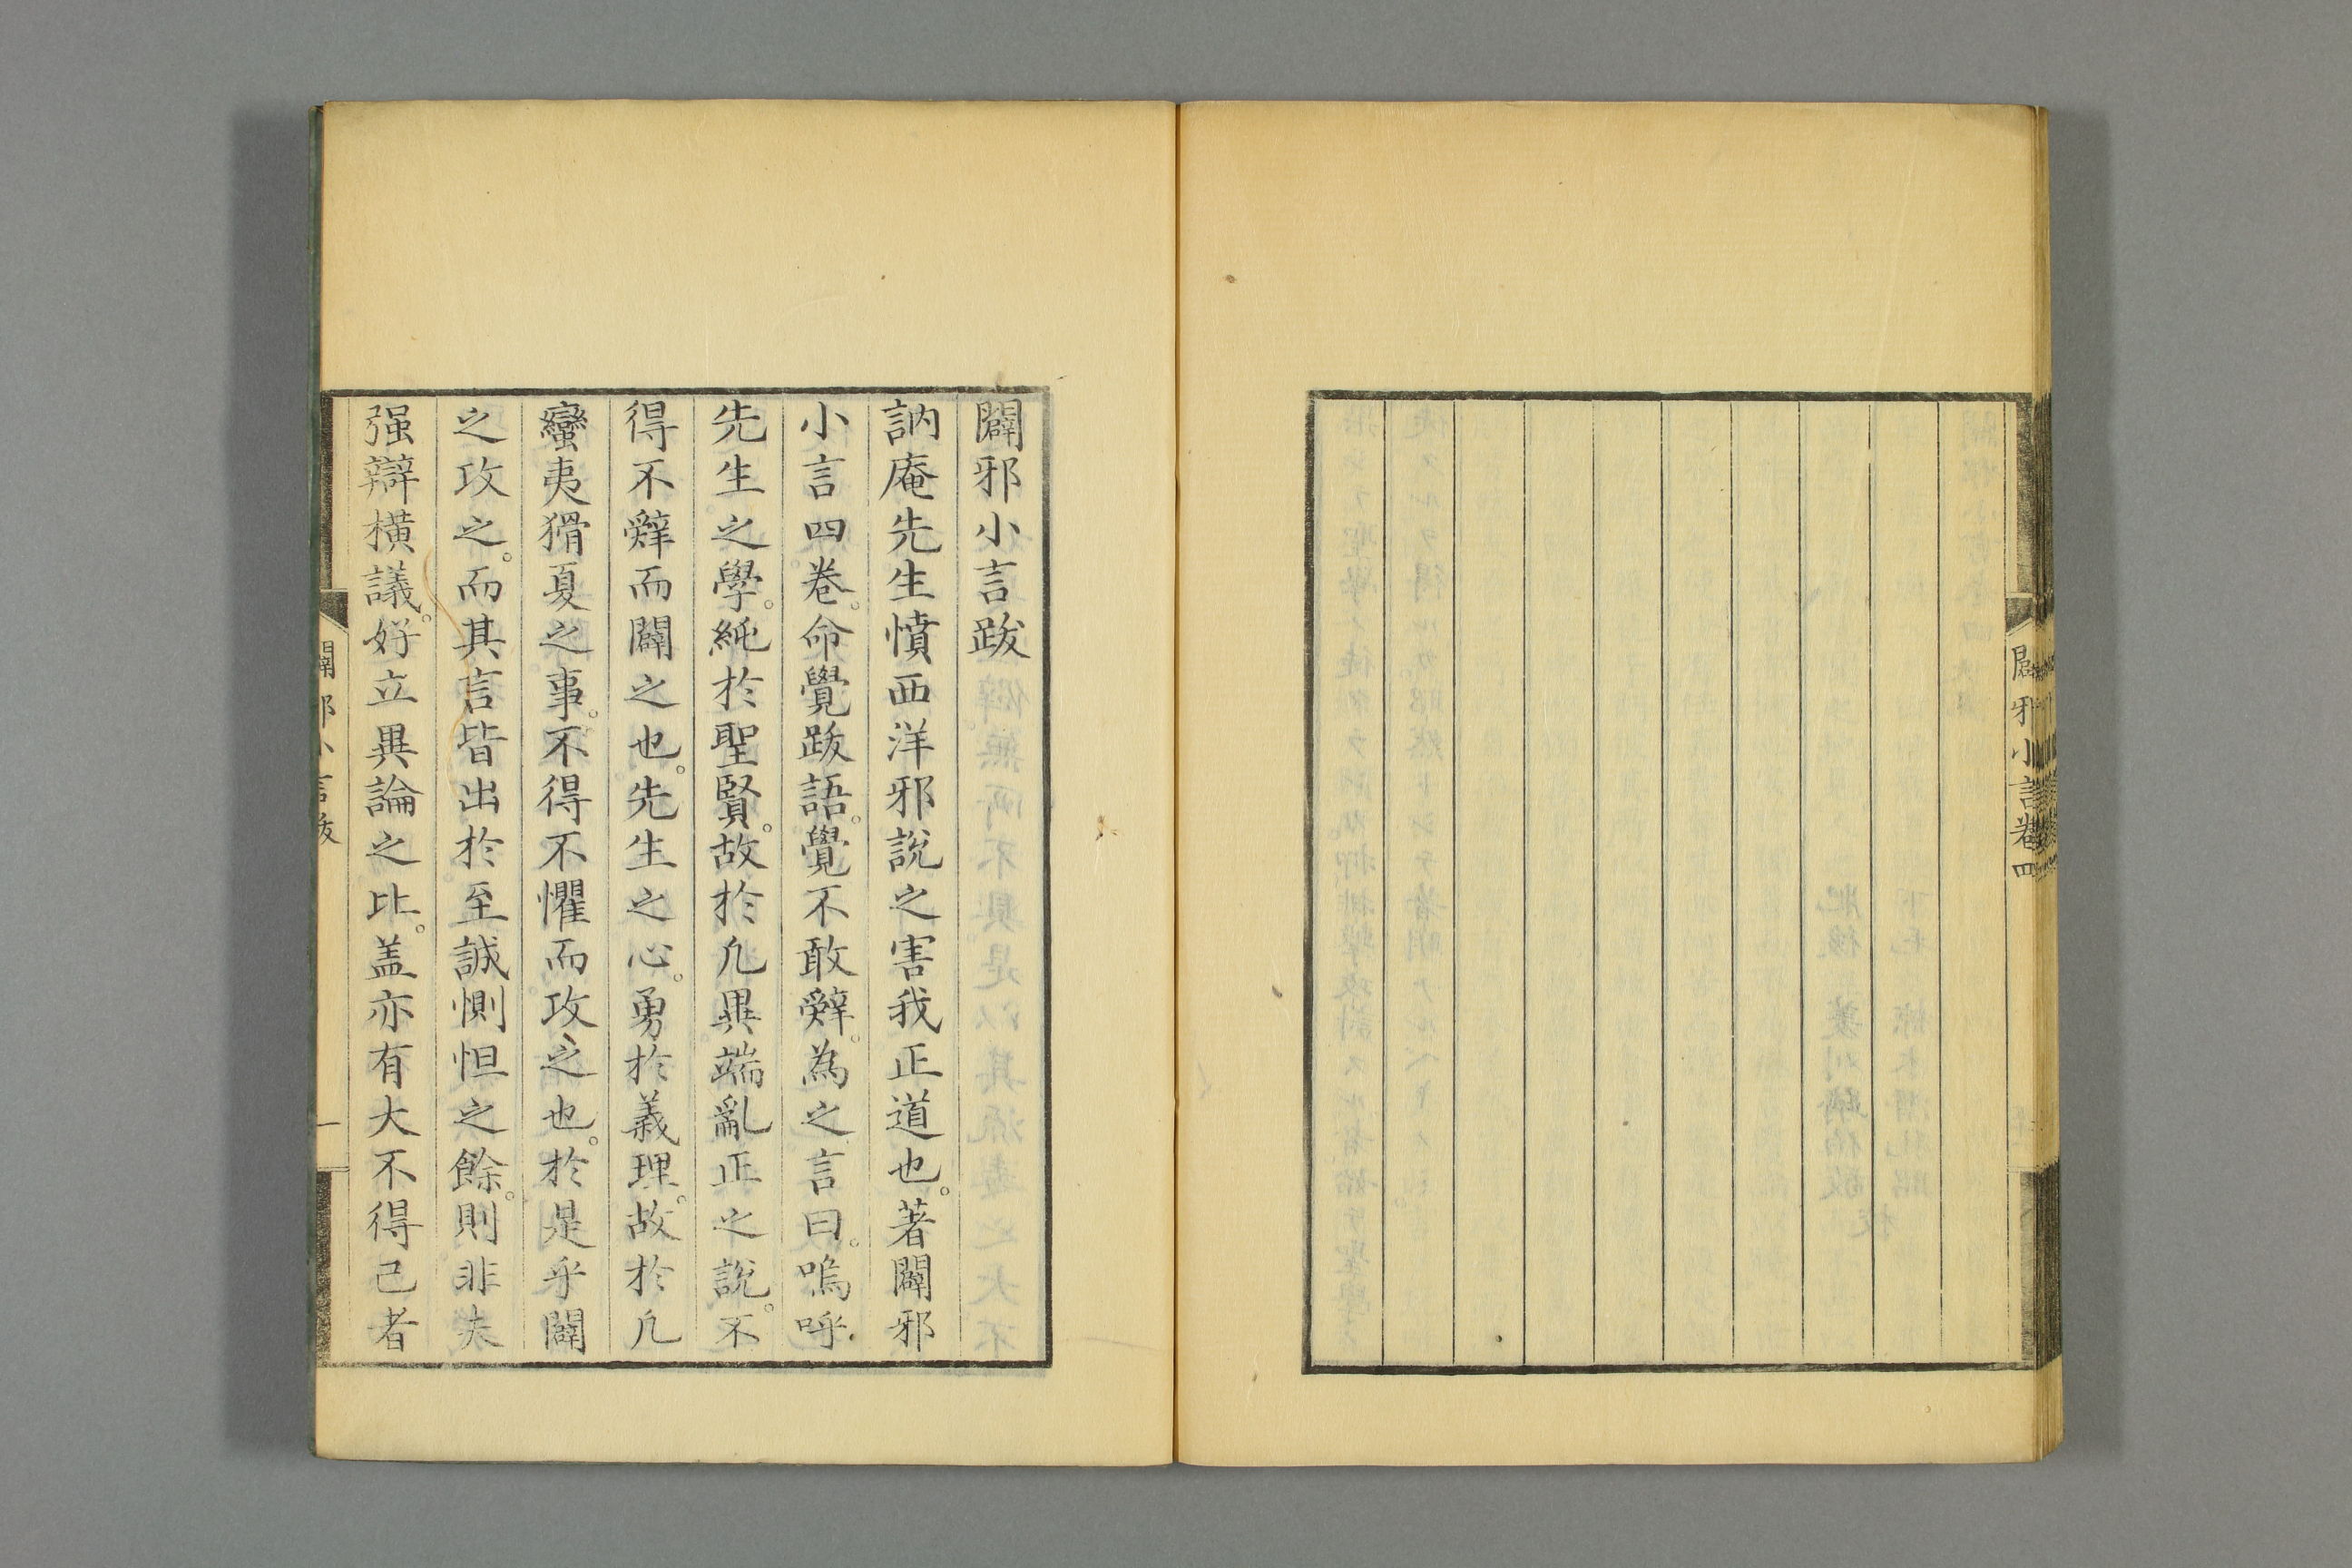 闢邪小言卷四
闢邪小言跋
訥庵先生憤西洋邪說之害我正道也。著闢邪
小言四卷。命覺跋語。覺不敢辤。為之言曰。嗚呼。
先生之學。純於聖賢。故於凢異端亂正之說。不
得不辤而闢之也。先生之心。勇於義理。故於凢
蠻夷猾夏之事。不得不懼而攻之也。於是乎闢
之攻之。而其言皆出於至誠惻怛之餘。則非夫
强辯橫議。好立異論之比。盖亦有大不得已者
闢邪小言跋
一